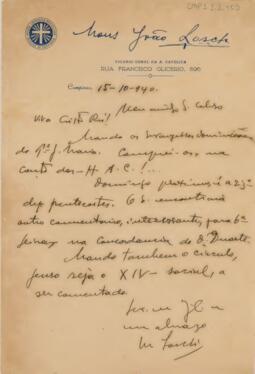 Mons João Losch
VIGARIO GERAL DA A. CATÓLICA
RUA FRANCISCO GLICERIO, 696
Campinas, 15-10-940.
Meu amigo S. Celso
Viva Cristo Rei!
Mando os evangelhos
do Pe. J. Maria. na
conta dos - H. A. C. !...
Domingo proximo é a 23ª
dep pentecostes. O S. encontrará
outro commentario, interessante, para 6ª
feira na Concordancia de D. Duarte.
Mando tambem o circulo,
penso seja o XIV - social, a
ser comentado.
um abraço
M Losch